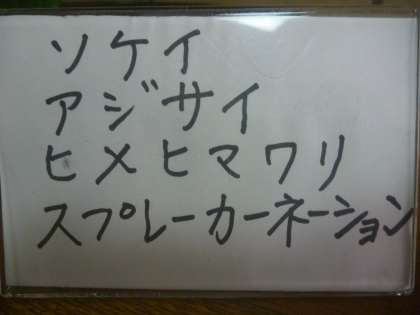 ソケイ
アジサイ
ヒメヒマワリ
スプレーカーネーション